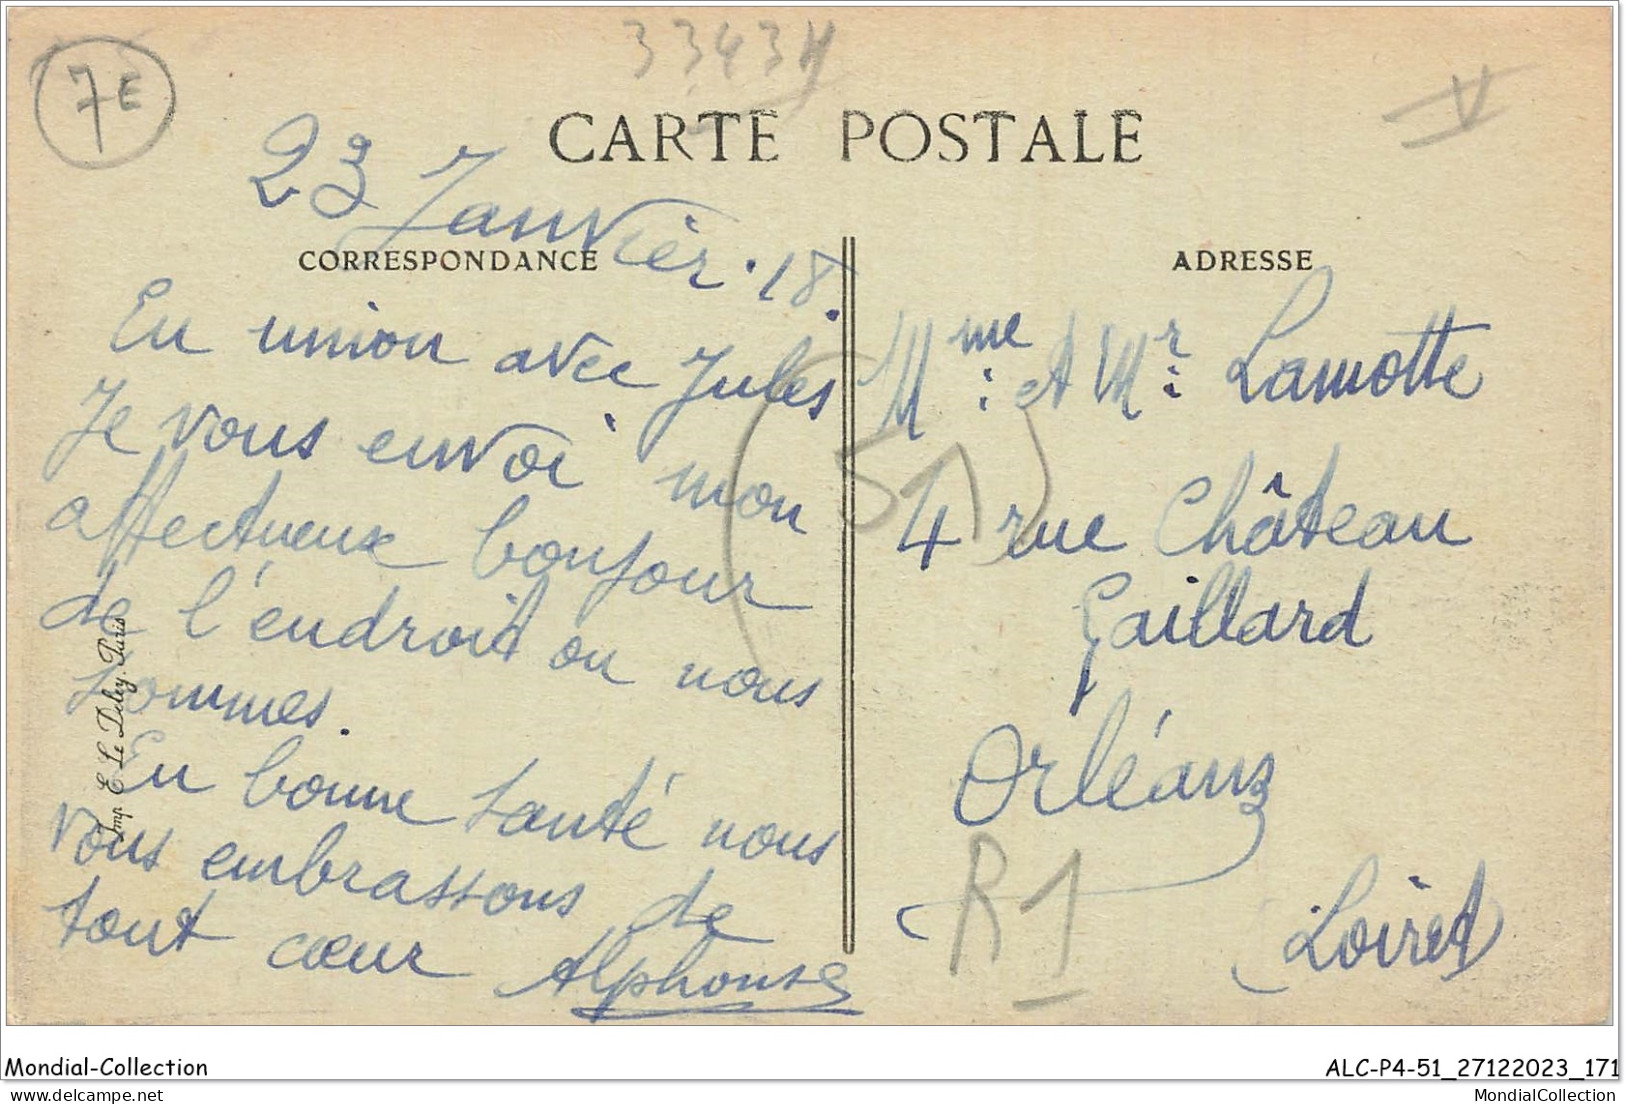 7E
3343H
V
CARTE POSTALE
23 Janvier . 18.
CORRESPONDANCE
En union avec Jules
Je vous envoi mon
affectueux bonjour
de l'endroit ou nous
sommes.
En bonne santé nous
vous embrassons de
tout cœur Alphonse
Imp. E. Le Deley. Paris
ADRESSE
Mme et Mr Lamotte
(51)
4 rue Château
Gaillard
Orléans
R1
Loiret
Mondial-Collection
ALC-P4-51_27122023_171
MondialCollection.com
MondialCollection